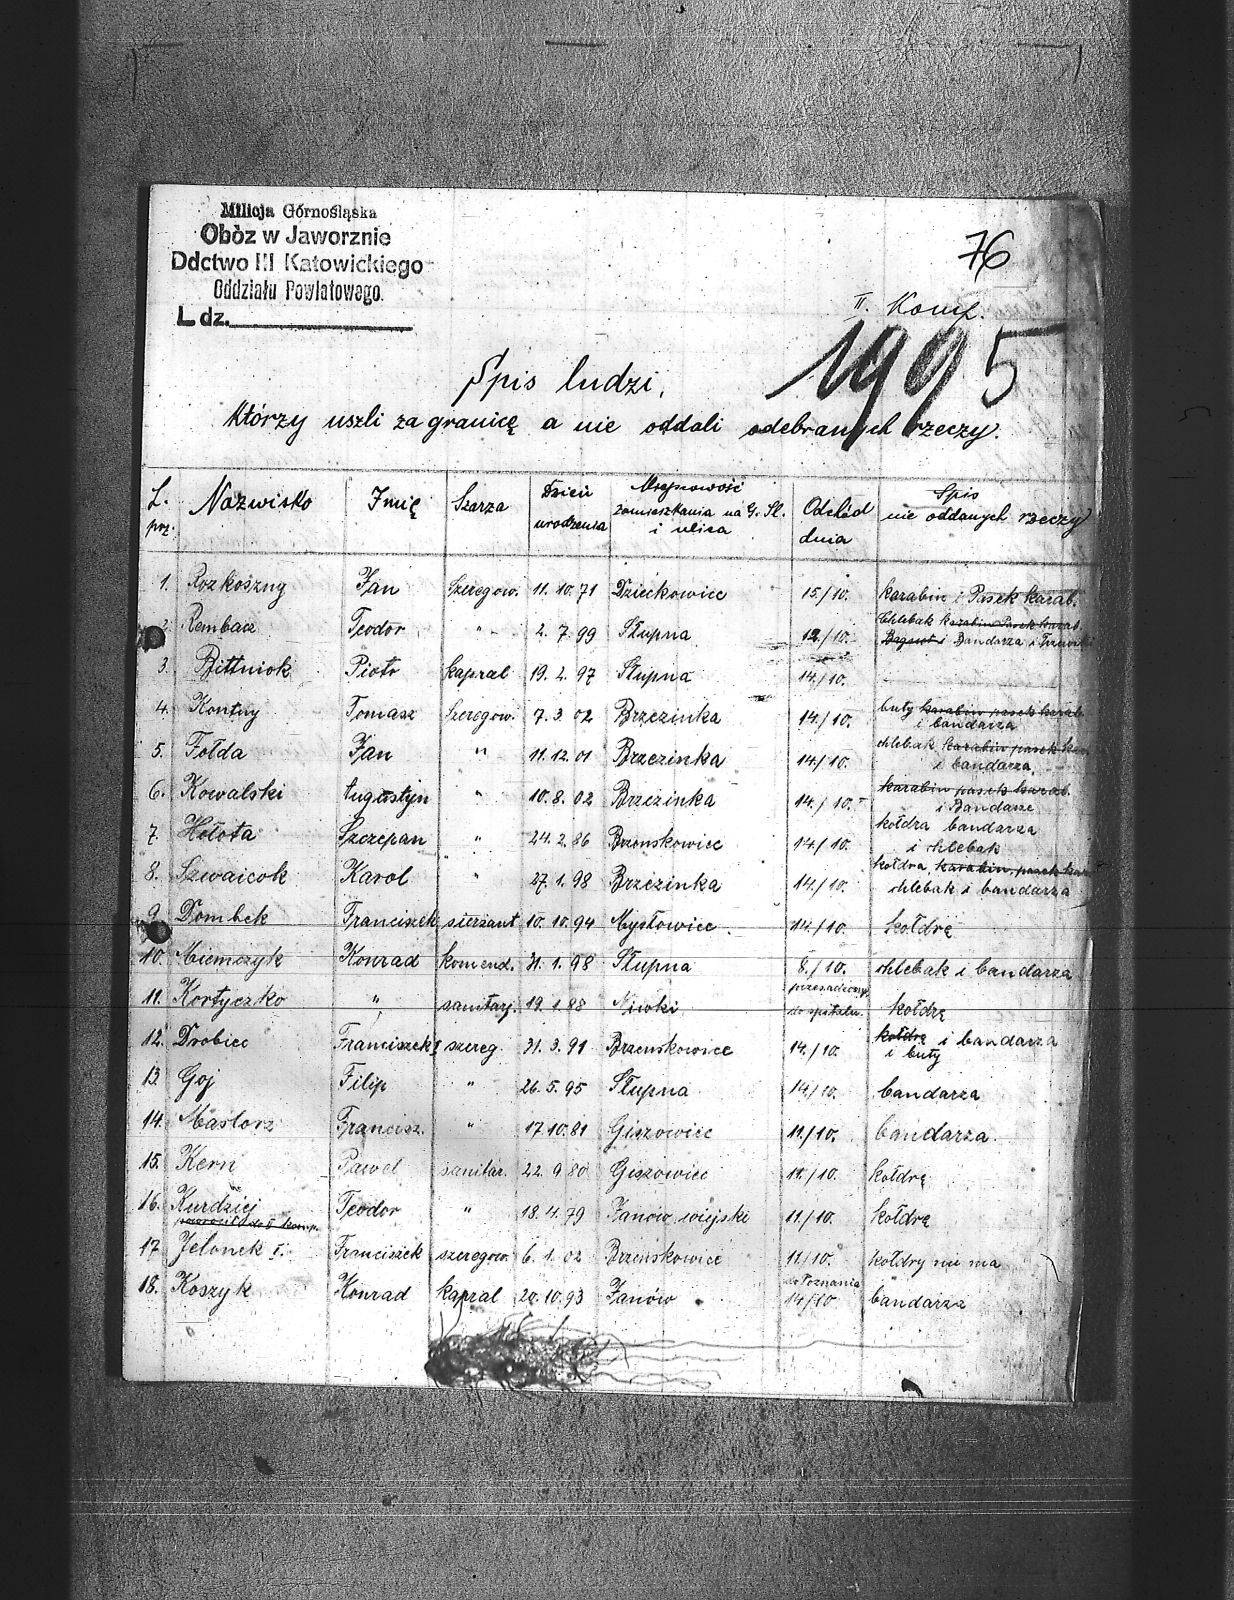 Milicja Górnośląska
Obòz w Jaworznie
Ddctwo III Katowickiego
Oddziału Powiatowego.
L. dz.
76
II. Komp.
1995
Spis ludzi,
którzy uszli za granicę a nie oddali odebranych rzeczy.
L. prz. Nazwisko Imię Szarza Dzień urodzenia Miejscowość zamieszkania na G. Śl. i ulica Odszedł dnia Spis nie oddanych rzeczy
1. Rozkoszny Jan Szeregow. 11.10.71 Dzieckowice 15/10. karabin i Pasek karab.
2. Rembacz Teodor " 2.7.99 Słupna 12/10. Chlebak karabin Pasek karab. Bagnet i Bandarza i
3. Bittniok Piotr kapral 19.2.97 Słupna 14/10.
4. Kontny Tomasz Szeregow. 7.3.02 Brzezinka 14/10. buty karabin pasek karab. i bandarza
5. Fołda Jan " 11.12.01 Brzezinka 14/10. chlebak karabin pasek i bandarza
6. Kowalski Augustyn " 10.8.02 Brzezinka 14/10. karabin pasek karab. i Bandarze
7. Hołota Szczepan " 24.2.86 Brzenskowice 14/10. kołdra bandarza i chlebak
8. Szwaicok Karol " 27.1.98 Brzezinka 14/10. kołdra karabin, pasek chlebak i bandarza
9. Dombek Franciszek sierzant 10.10.94 Mysłowice. 14/10. kołdrę
10. Niemczyk Konrad komend. 31.1.98 Słupna 8./10. chlebak i bandarza
11. Kortyczko " sanitarj. 19.1.88 Niwki do szpitalu kołdrę
12. Drobiec Franciszek I szereg. 31.3.91 Brzenskowice 14/10. kołdrę i bandarza i buty
13. Goj Filip " 26.5.95 Słupna 14/10. bandarza
14. Mastorz Francisz. " 17.10.81 Giszowiec 11/10. bandarza.
15. Kern Paweł sanitar. 22.9.80 Giszowiec 11/10. kołdrę
16. Kurdziej Teodor " 18.4.79 Janów wiejski 11/10. kołdrę
powrócił do II komp.
17. Jelonek I. Franciszek szeregow. 6.1.02 Brzenskowice 11/10. kołdry nie ma
18. Koszyk Konrad kapral 20.10.93 Janów do Poznania 14/10 bandarza